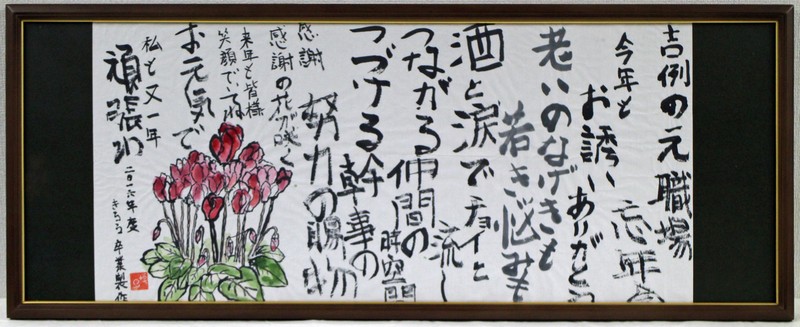 吉例の元職場
忘年会
今年も
お誘いありがとう
老いのなげきも
若き悩みも
酒と涙でチョイと
流し
つながる仲間の
時空間
つづける幹事の
努力の賜物
感謝
感謝の花が咲く
来年も皆様
笑顔でいてね
お元気で
私も又一年
頑張ル
二〇一六年度
きらら卒業製作